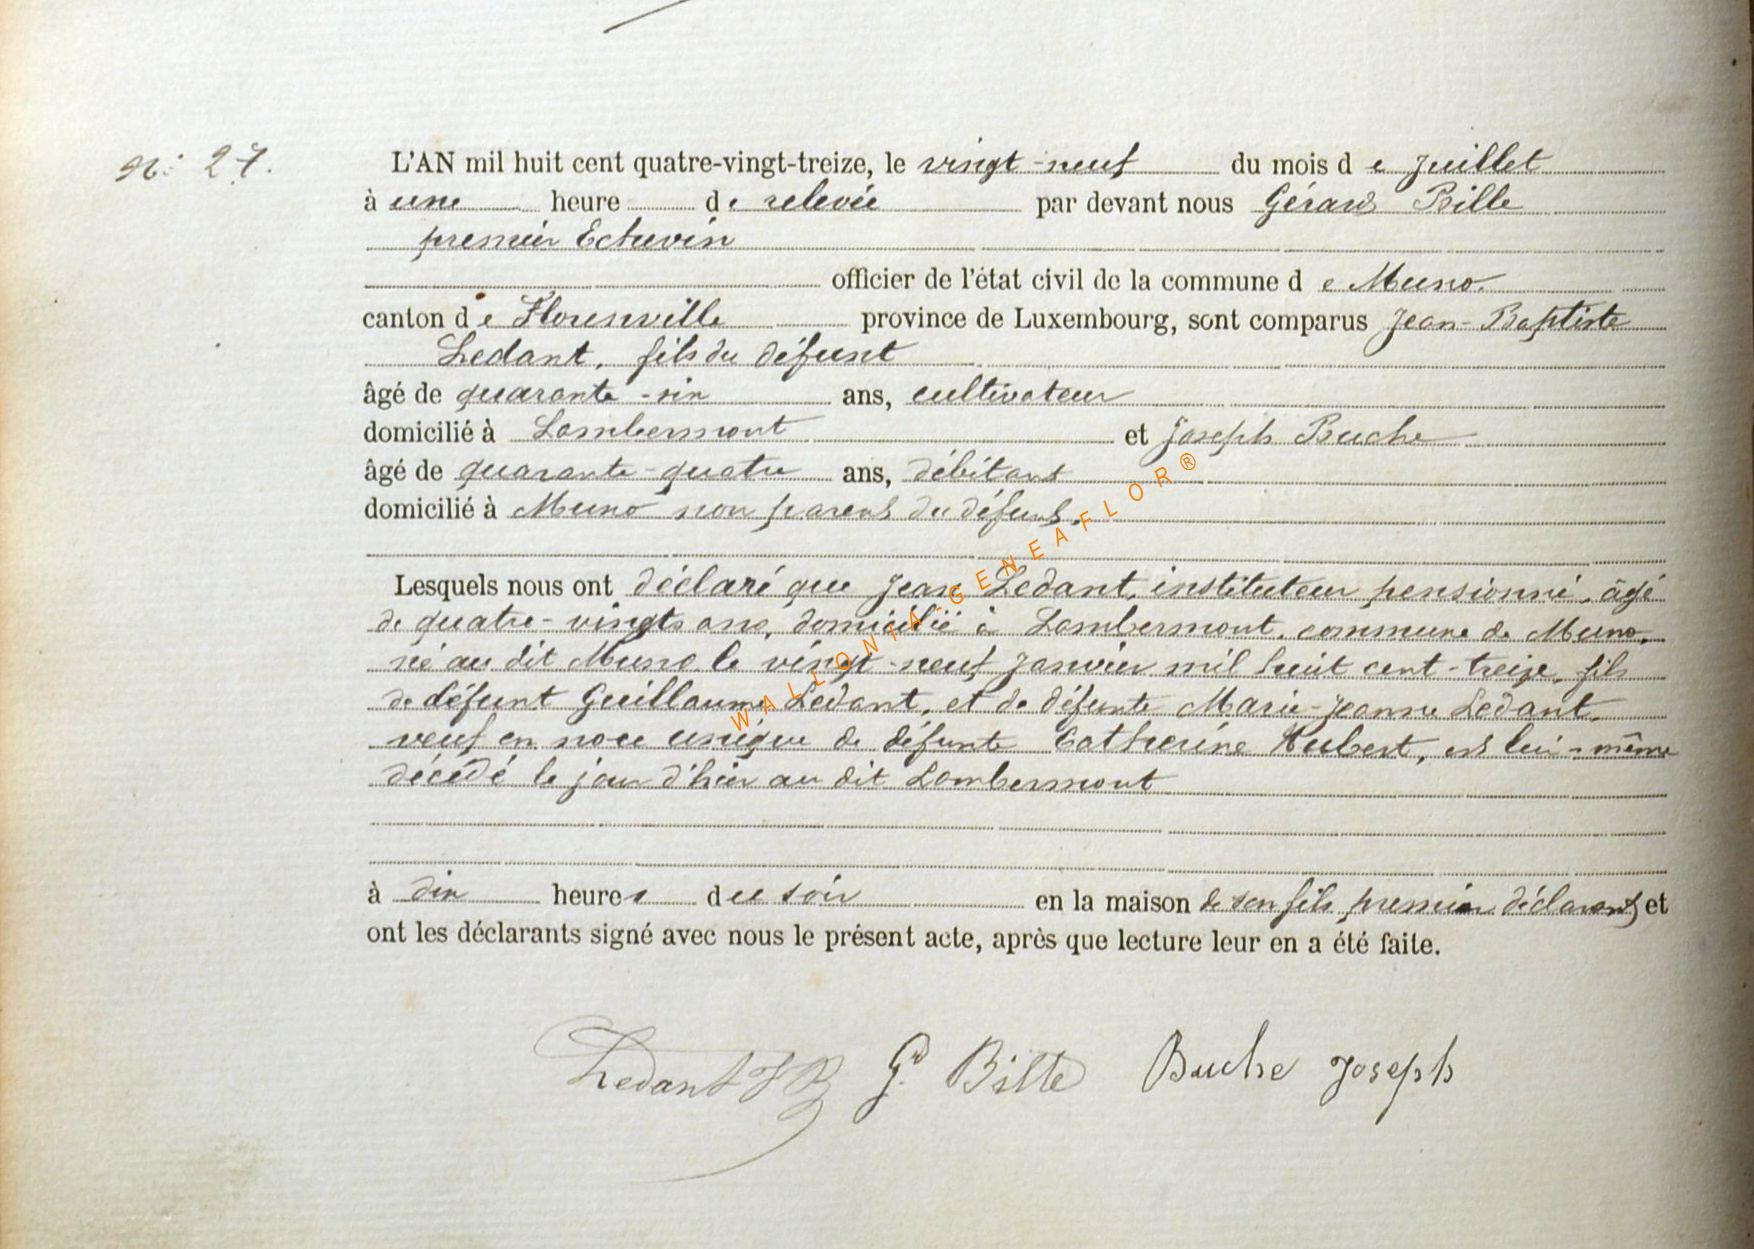 N: 27. L'AN mil huit cent quatre-vingt-treize, le vingt-neuf du mois de Juillet
à une heure de relevée par devant nous Gérard Bille
premier Echevin
officier de l'état civil de la commune de Muno.
canton de Florenville province de Luxembourg, sont comparus Jean-Baptiste
Ledant, fils du défunt
âgé de quarante-six ans, cultivateur
domicilié à Lambermont et Joseph Buche
âgé de quarante-quatre ans, débitant
domicilié à Muno non parent du défunt.
Lesquels nous ont déclaré que Jean Ledant, instituteur pensionné, âgé
de quatre-vingts ans, domicilié à Lambermont, commune de Muno,
né au dit Muno le vingt-neuf Janvier mil huit cent-treize, fils
de défunt Guillaume Ledant, et de défunte Marie-Jeanne Ledant,
veuf en noce unique de défunte Catherine Hubert, est lui-même
décédé le jour d'hier au dit Lambermont
à dix heures du soir en la maison de son fils premier déclarant, et
ont les déclarants signé avec nous le présent acte, après que lecture leur en a été faite.
Ledant JB Gd Bille Buche Joseph
WALLONIA GENEAFLOR®